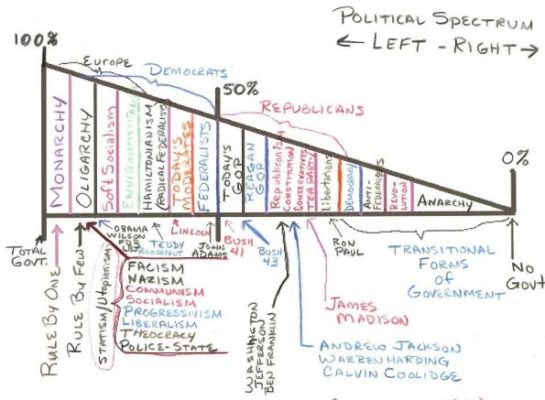 POLITICAL SPECTRUM
← LEFT - RIGHT →
100%
EUROPE
DEMOCRATS
50%
REPUBLICANS
0%
MONARCHY
OLIGARCHY
Soft Socialism
HAMILTONIANISM
(RADICAL FEDERALISTS)
TODAY'S
MODERATES
FEDERALISTS
TODAY'S
GOP
REAGAN
GOP
Republicanism
CONSTITUTION
CONSERVATIVES
TEA PARTY
Libertarians
DEMOCRACY
ANTI-
FEDERALISTS
REVO-
LUTION
ANARCHY
TOTAL
GOVT.
RULE BY ONE
RULE BY FEW
STATISM/UTOPIANISM
OBAMA
WILSON
FDR
LBJ
TEDDY
ROOSEVELT
LINCOLN
JOHN
ADAMS
BUSH
41
BUSH
43
RON
PAUL
TRANSITIONAL
FORMS
OF
GOVERNMENT
NO
GOVT
FACISM
NAZISM
COMMUNISM
SOCIALISM
PROGRESSIVISM
LIBERALISM
THEOCRACY
POLICE-STATE
WASHINGTON
JEFFERSON
BEN FRANKLIN
JAMES
MADISON
ANDREW JACKSON
WARREN HARDING
CALVIN COOLIDGE